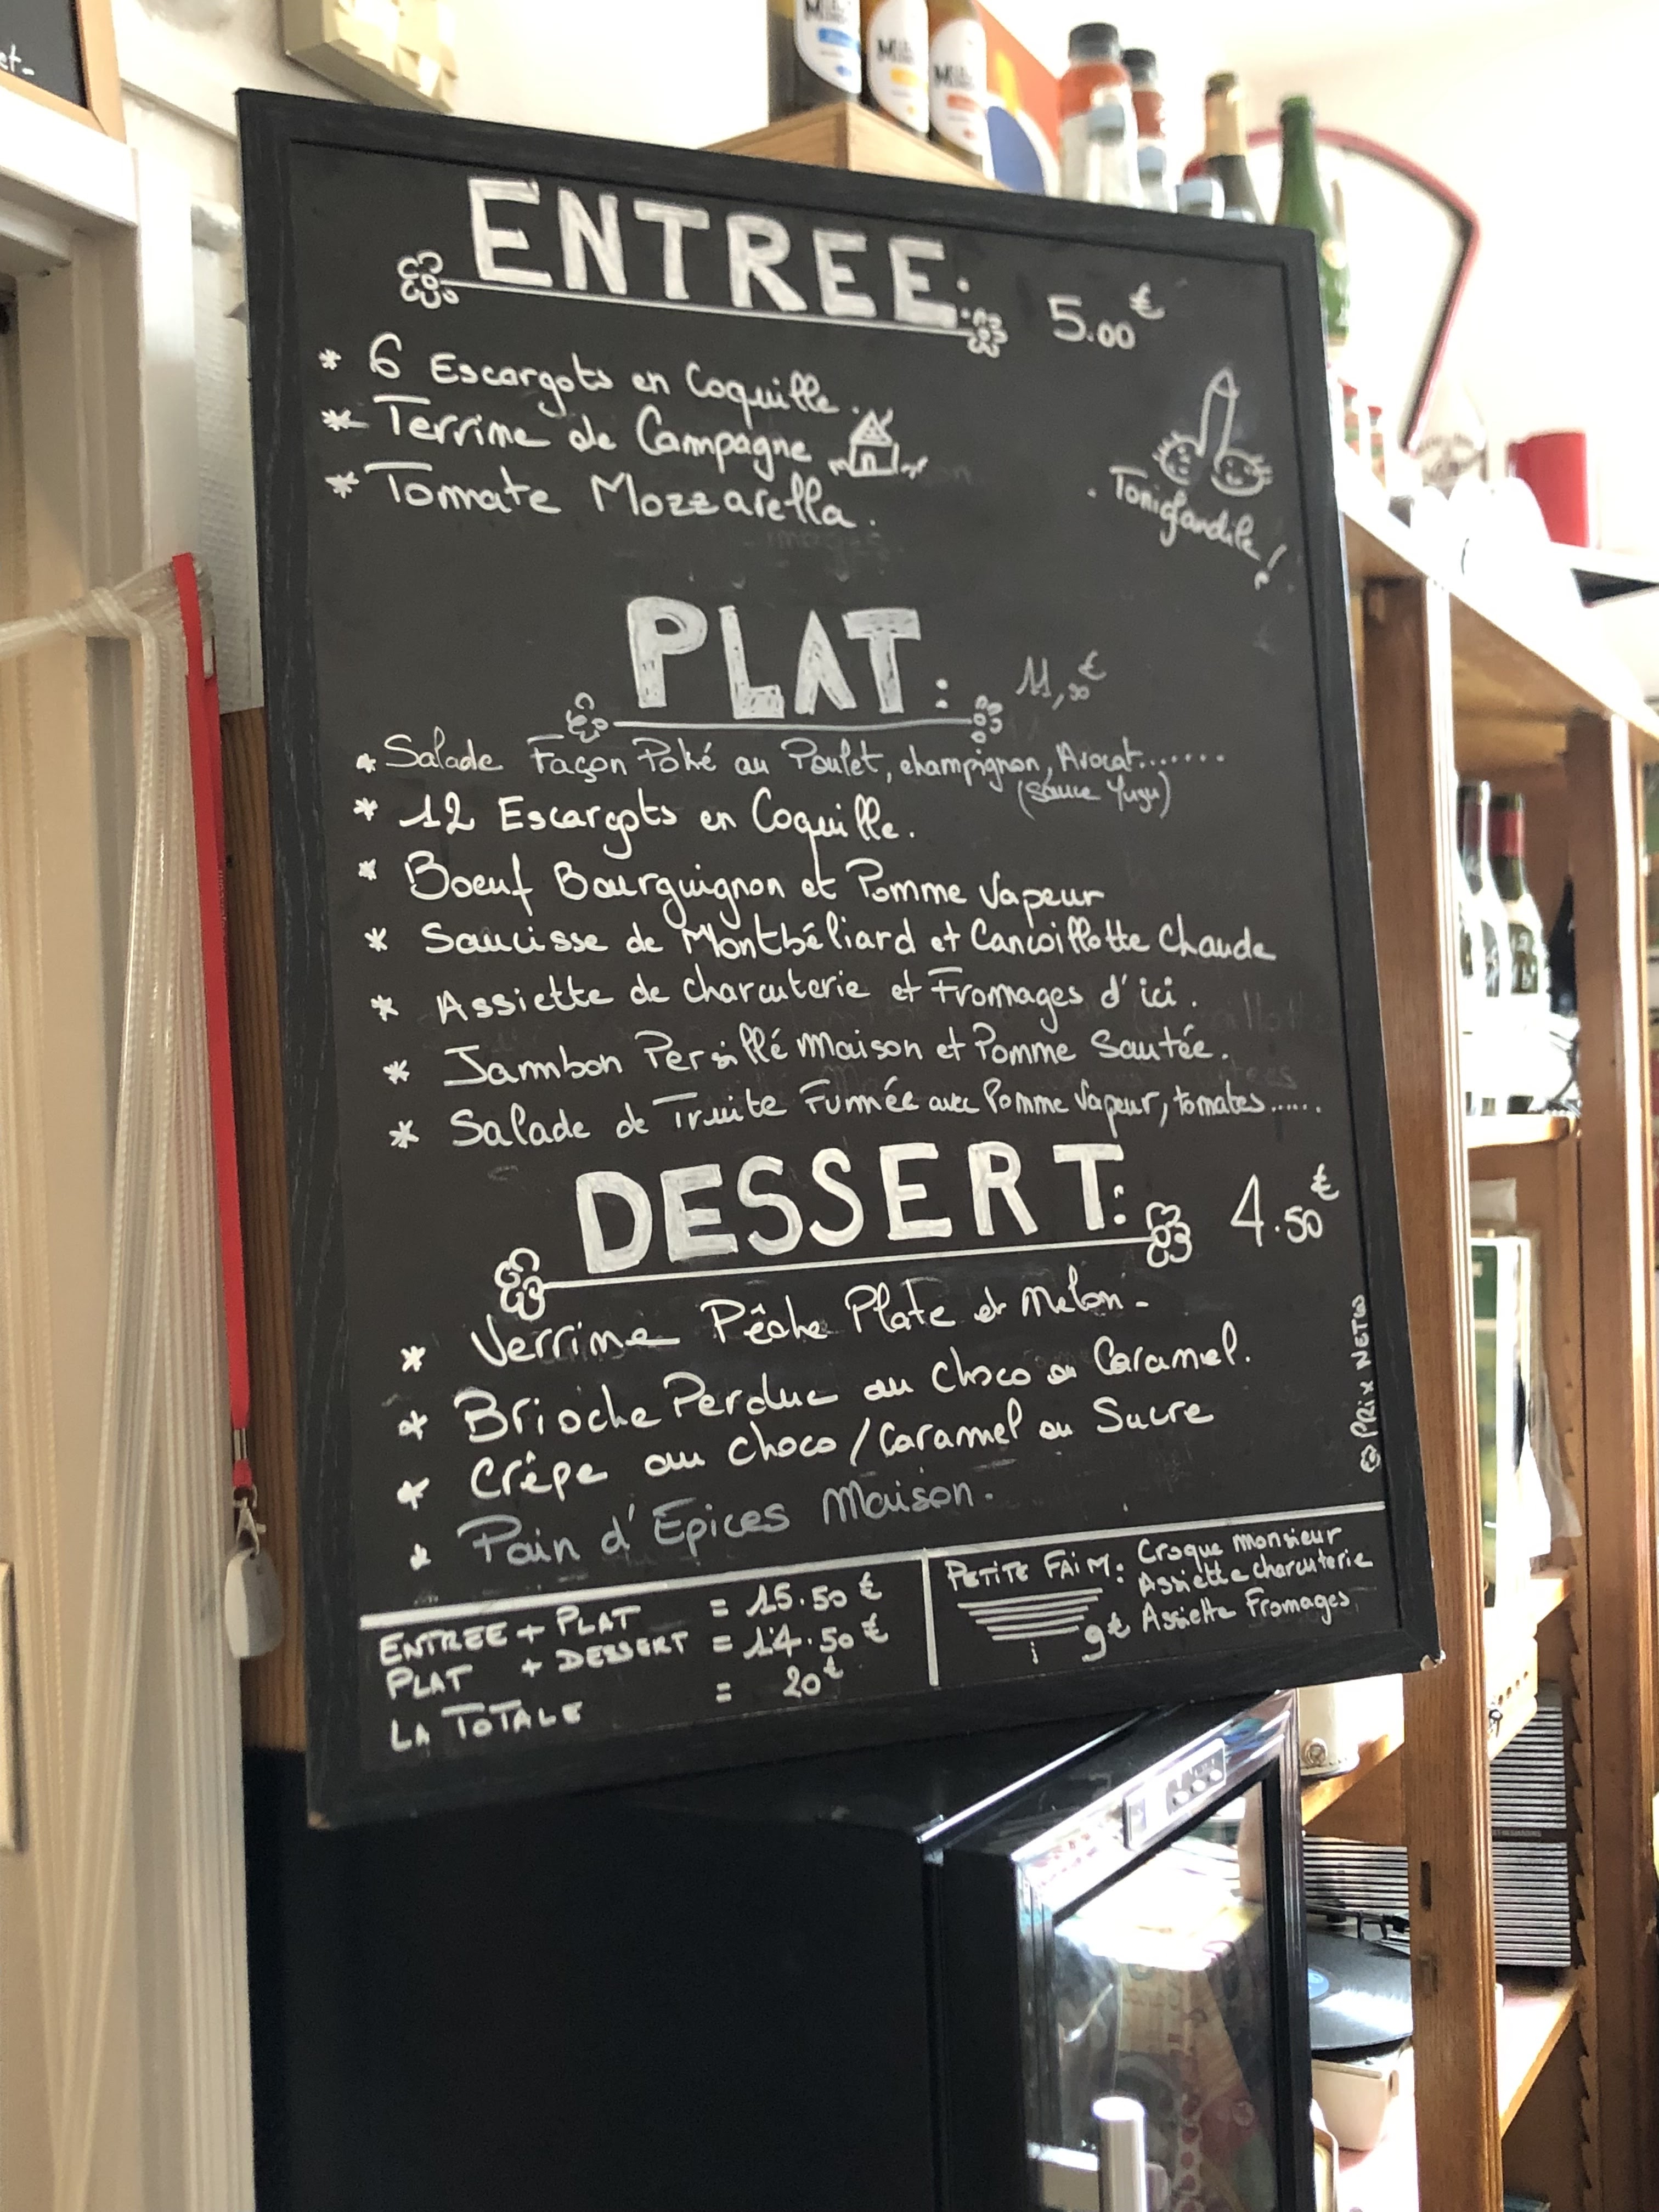 ENTREE: 5.00€
* 6 Escargots en Coquille.
* Terrine de Campagne
* Tomate Mozzarella.
. Tonigandile !
PLAT: 11,00€
* Salade Façon Poké au Poulet, champignon, Avocat.......
(Sauce Yuzu)
* 12 Escargots en Coquille.
* Boeuf Bourguignon et Pomme Vapeur
* Saucisse de Montbéliard et Cancoillotte Chaude
* Assiette de charcuterie et Fromages d'ici.
* Jambon Persillé Maison et Pomme Sautée.
* Salade de Truite Fumée avec Pomme Vapeur, tomates......
DESSERT: 4.50€
* Verrine Pêche Plate et Melon-
* Brioche Perdue au Choco ou Caramel.
* Crêpe au choco/Caramel ou Sucre
* Pain d'Epices Maison.
PRIX NETS
ENTREE + PLAT = 15.50€
PLAT + DESSERT = 14.50€
LA TOTALE = 20€
PETITE FAIM: Croque monsieur
Assiette charcuterie
9€ Assiette Fromages